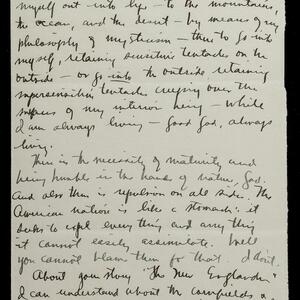 myself out into life – to the mountains,
the ocean, and the desert – by means of my
philosophy of mysticism – then to go into
myself, retaining sensitive tentacles on the
outside – or go into the outside retaining
supersensitive tentacles creeping over the
of my interior being – while
I am always living – good God, always
living.
This is the necessity of maturity and
being humble in the hands of nature, God.
And also there is repulsion on all sides. The
American nation is like a stomach: it
seeks to expel every thing and any thing
it cannot easily assimilate. Well
you cannot blame them for that. I don't.
About your story "The New Englander"
I can understand about the cornfields